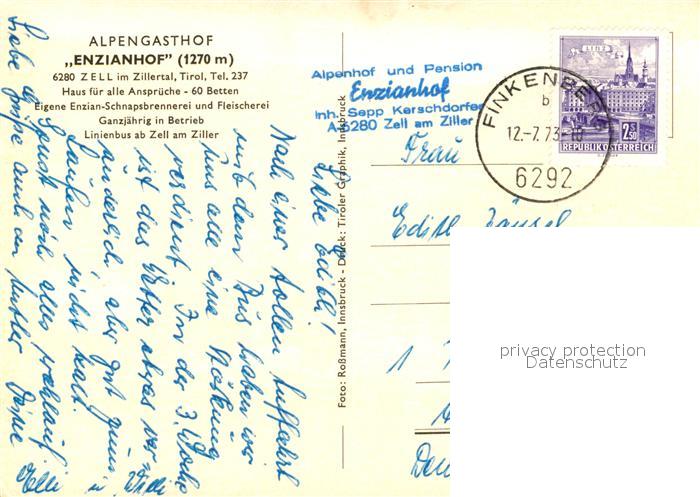 ALPENGASTHOF
„ENZIANHOF" (1270 m)
6280 ZELL im Zillertal, Tirol, Tel. 237
Haus für alle Ansprüche - 60 Betten
Eigene Enzian-Schnapsbrennerei und Fleischerei
Ganzjährig in Betrieb
Linienbus ab Zell am Ziller
Alpenhof und Pension
Enzianhof
Inh. Sepp Kerschdorfer
A-6280 Zell am Ziller
LINZ
2.50
REPUBLIK ÖSTERREICH
FINKENBERG
b
12.-7.73
6292
Frau
Edith
Foto: Roßmann, Innsbruck - Druck: Tiroler Graphik, Innsbruck
Liebe Edith!
Nach einer tollen Luftfahrt
mit dem Bus haben wir
uns alle eine Stärkung
verdient. In der 3. Woche
ist das Wetter etwas ver-
änderlich aber gut zum
Laufen nicht kalt.
Sonst noch alles wohlauf
Grüße auch an Mutter
Liebe
Elli u. Willi
privacy protection
Datenschutz